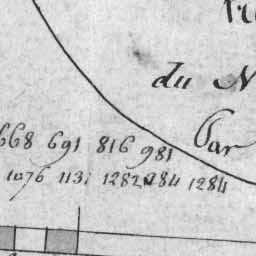 du N
Par
668 691 816 981
1076 1131 1282 1284 1284